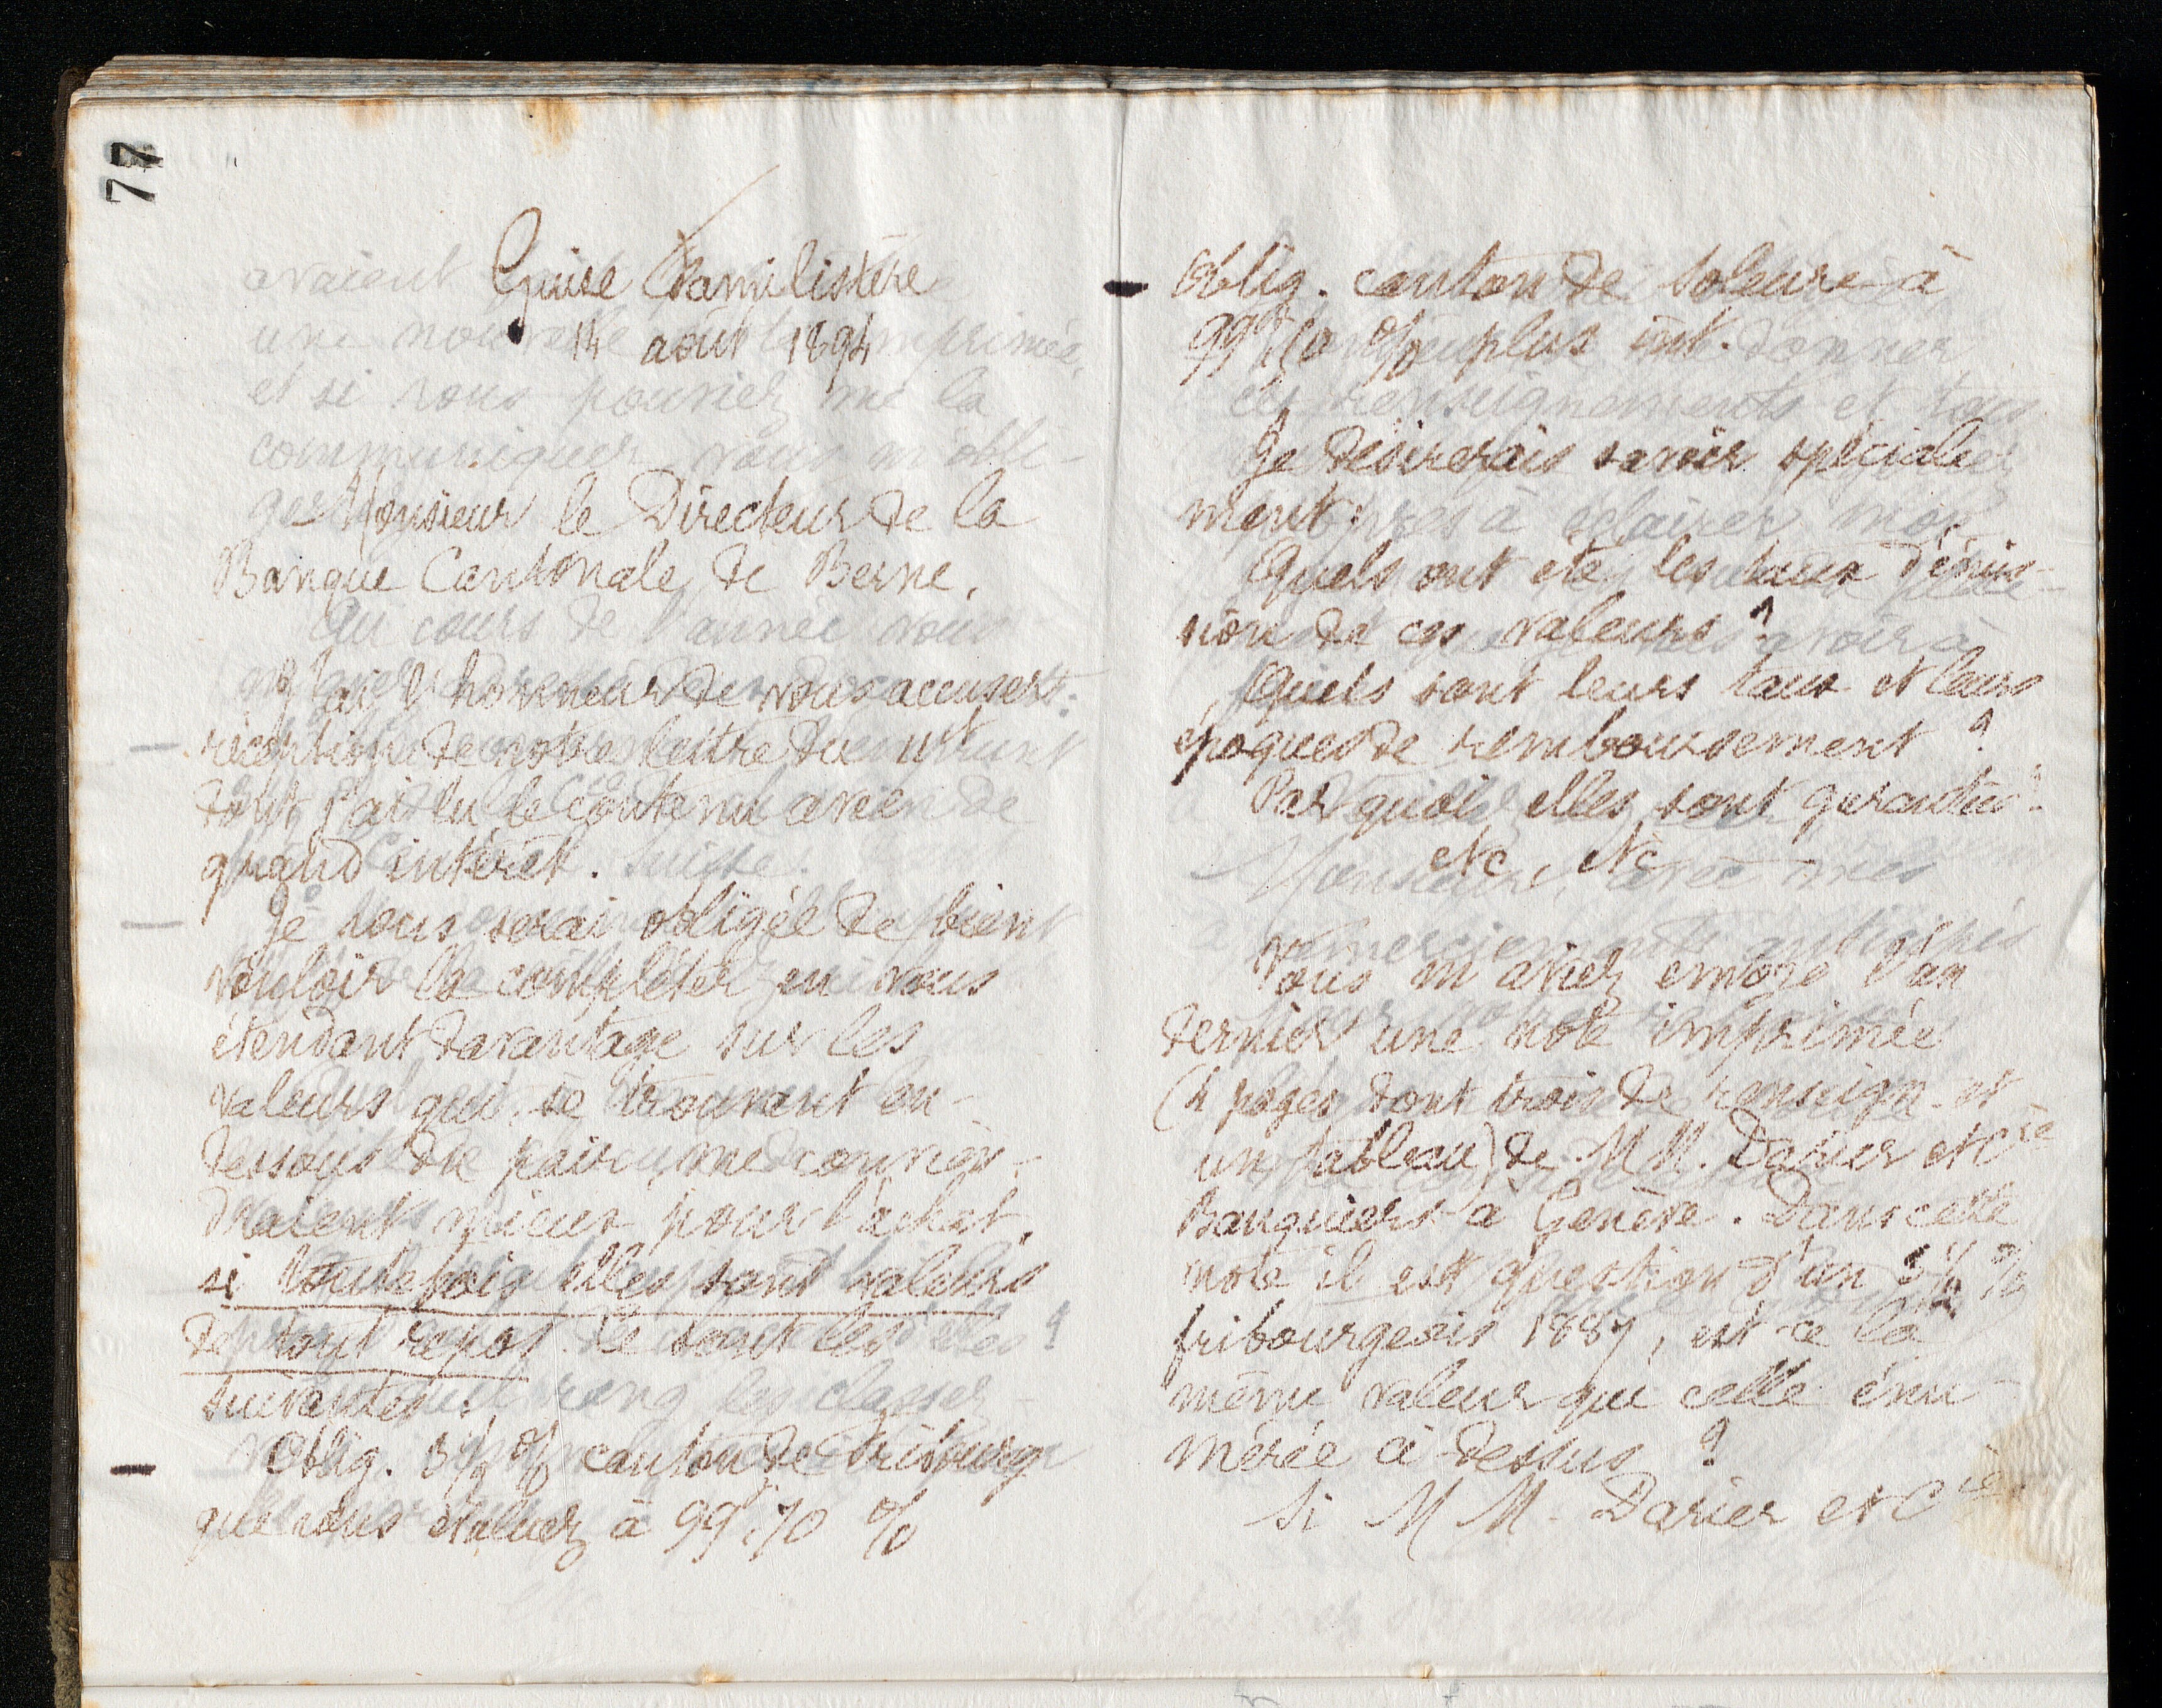 77
Guise Familistère
14 août 1894
Monsieur le Directeur de la
Banque Cantonale de Berne.
J'ai l'honneur de vous accuser
réception de votre lettre du 11 ct
dont j'ai lu le contenu avec
grand intérêt.
Je vous serai obligée de bien
vouloir la compléter en vous
étendant davantage sur les
valeurs qui, se trouvant en-
dessous du pair, me convien-
draient mieux pour l'achat,
si toutefois elles sont valeurs
de tout repos. Ce sont les
suivantes :
Oblig. 3 1/2 % canton de Fribourg
que vous évaluez à 99f.70 %
Oblig. canton de Soleure à
% plus int.
Je désirerais savoir spéciale
ment :
Quels ont été les taux d'émis-
sion de ces valeurs ?
Quels sont leurs taux et leurs
époques de remboursement ?
Par quoi elles sont garanties ?
etc, etc
Vous m'aviez envoyé l'an
dernier une note imprimée
(4 pages dont trois de renseign. et
un tableau) de MM. Darier et Cie
Banquiers à Genève. Dans cette
note il est question d'un %
fribourgeois 1887, est-ce la
même valeur que celle énu-
mérée ci-dessus ?
Si MM. Darier et Cie